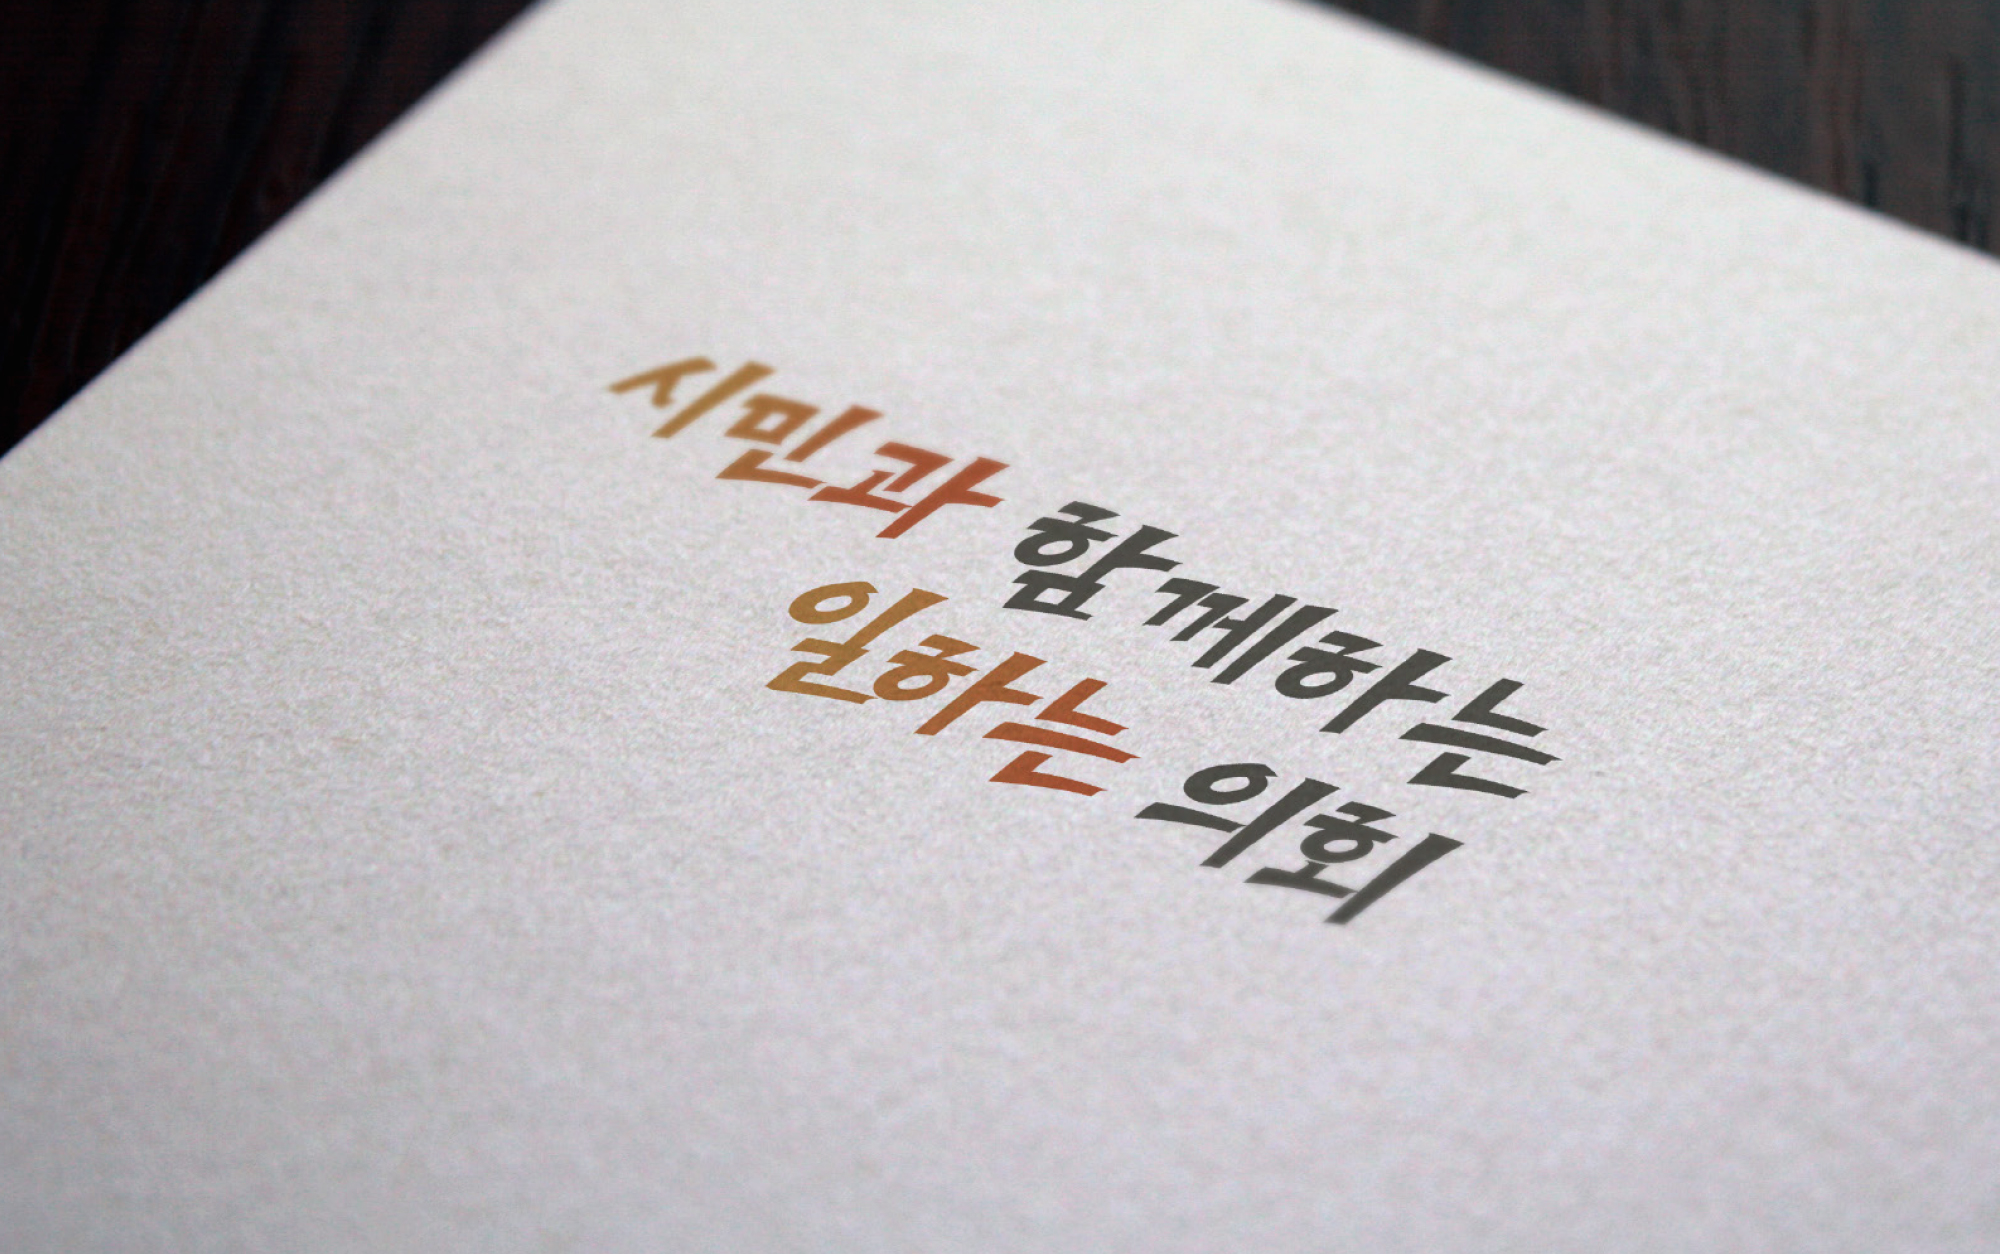 시민과 함께하는
일하는 의회